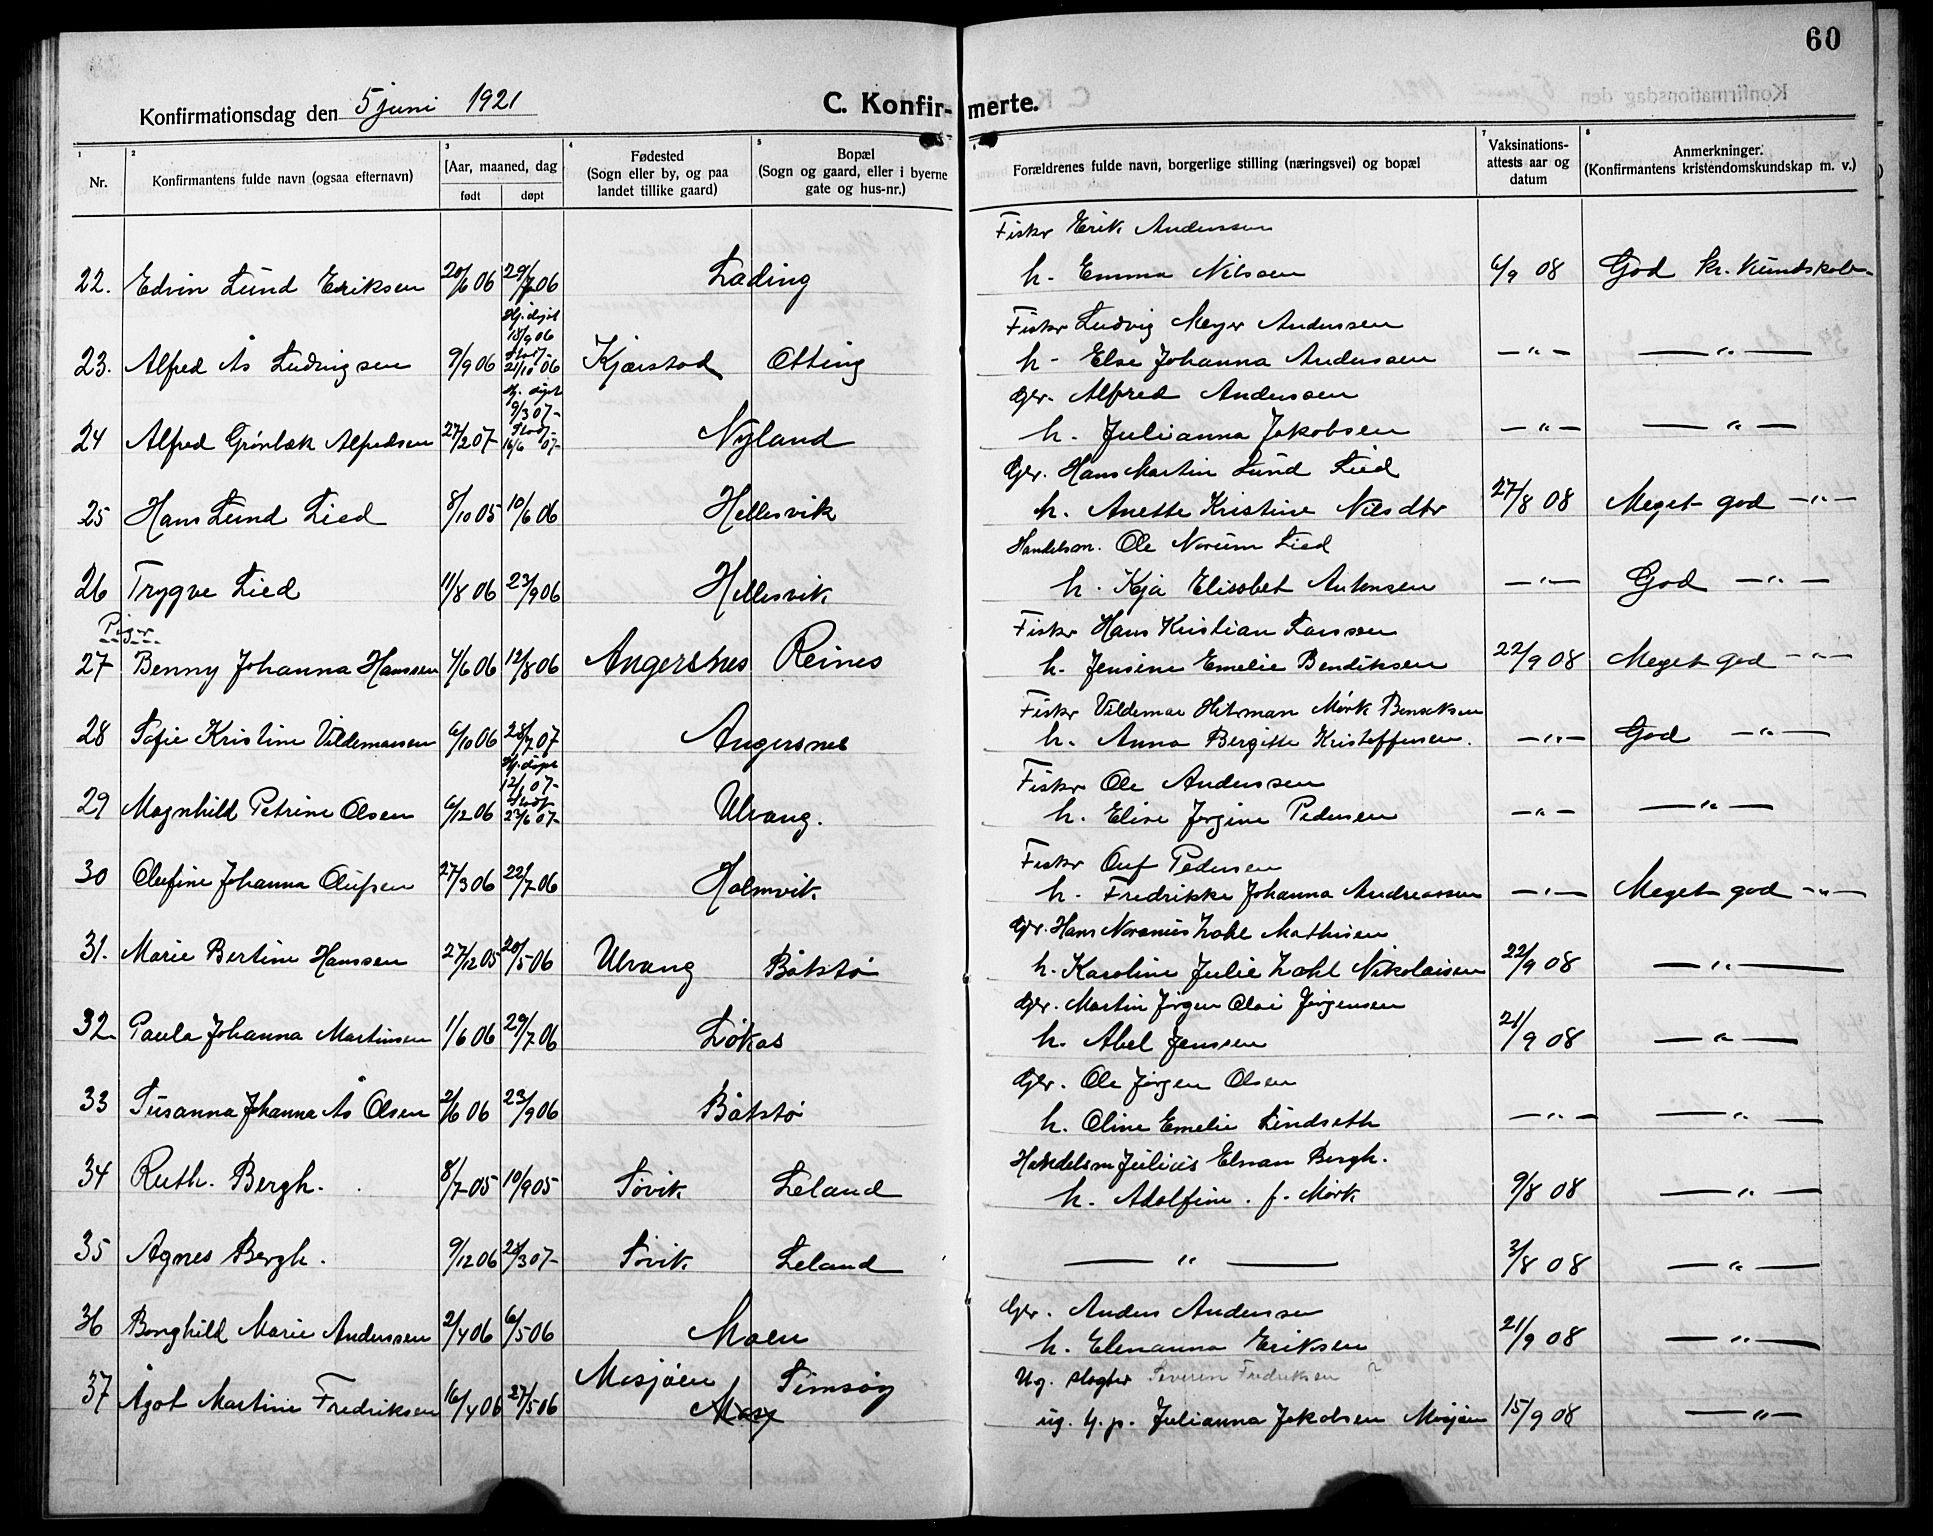 60
Konfirmationsdag den 5 juni 1921
C. Konfirmerte.
1 Nr.
2 Konfirmantens fulde navn (ogsaa efternavn)
3 Aar, maaned, dag
født
døpt
4 Fødested (Sogn eller by, og paa landet tillike gaard)
5 Bopæl (Sogn og gaard, eller i byerne gate og hus-nr.)
6 Forældrenes fulde navn, borgerlige stilling (næringsvei) og bopæl
7 Vaksinations-attests aar og datum
8 Anmerkninger. (Konfirmantens kristendomskundskap m. v.)
Fisker Erik Anderssen
22. Edvin Lund Eriksen 20/6 06 29/7 06 Lading h. Emma Nilsen 6/9 08 God kr. kundskab
Hj. døpt 18/9 06
Fisker Ludvig Meyer Anderssen
23. Alfred Ås Ludvigsen 9/9 06 Stadf. 21/10 06 Kjærstad Otting h. Else Johanna Anderssen —"— —"—
Hj. døpt 9/3 07
Gbr. Alfred Anderssen
24 Alfred Grönbæk Alfredsen 27/2 07 Stadf. 16/6 07 Nyland h. Julianna Jakobsen —"— —"—
Gbr. Hans Martin Lund Lied
25 Hans Lund Lied 8/10 05 10/6 06 Hellesvik h. Anette Kristine Nilsdtr 27/8 08 Meget god —"—
Handelsm. Ole Norum Lied
26 Trygve Lied 11/8 06 23/9 06 Hellesvik h. Kaja Elisabet Antonsen —"— God —"—
Piger
Fisker Hans Kristian Larssen
27 Benny Johanna Hanssen 4/6 06 12/8 06 Angersnes Reines h. Jensine Emelie Bendiksen 22/9 08 Meget god —"—
Fisker Valdemar Hitman Mörk Bensaksen
28 Sofie Kristine Valdemarsen 6/10 06 28/7 07 Angersnes h. Anna Bergitte Kristoffersen. —"— God —"—
Hj. døpt 12/1 07
Fisker Ole Anderssen
29 Magnhild Petrine Olsen 6/12 06 Stadf. 23/6 07 Ulvang. h. Elise Jörgine Pedersen —"— —"—
Fisker Oluf Pedersen
30 Olufine Johanna Olufsen 27/3 06 22/7 06 Holmvik h. Fredrikke Johanna Andreassen —"— Meget god —"—
Gbr. Hans Norenius Zahl Mathisen
31. Marie Bertine Hanssen 27/12 05 20/5 06 Ulvang Båtstö h. Karoline Julie Zahl Nikolaisen 22/9 08 —"—
Gbr. Martin Jörgen Olai Jörgensen
32 Paula Johanna Martinsen 1/6 06 29/7 06 Lökås h. Abel Jenssen 21/9 08 —"—
Gbr. Ole Jörgen Olsen
33 Susanna Johanna Ås Olsen 2/6 06 23/9 06 Båtstö h. Oline Emelie Lindseth —"— —"—
Handelsm Julius Elnan Bergh.
34 Ruth. Bergh. 8/7 05 10/9 05 Sövik Leland h. Adolfine. f. Mörk 9/8 08 —"—
35 Agnes Bergh. 9/12 06 24/3 07 Sövik Leland —"— 3/8 08 —"—
Gbr. Anders Anderssen
36 Borghild Marie Anderssen 2/4 06 6/5 06 Moen h. Elenanna Eriksen 21/9 08 —"—
Ug. slagter Severin Fredriksen ?
37 Ågot Martine Fredriksen 16/4 06 27/5 06 Mosjöen Simsöy ug. h. p. Julianna Jakobsen Mosjöen 15/9 08 —"—